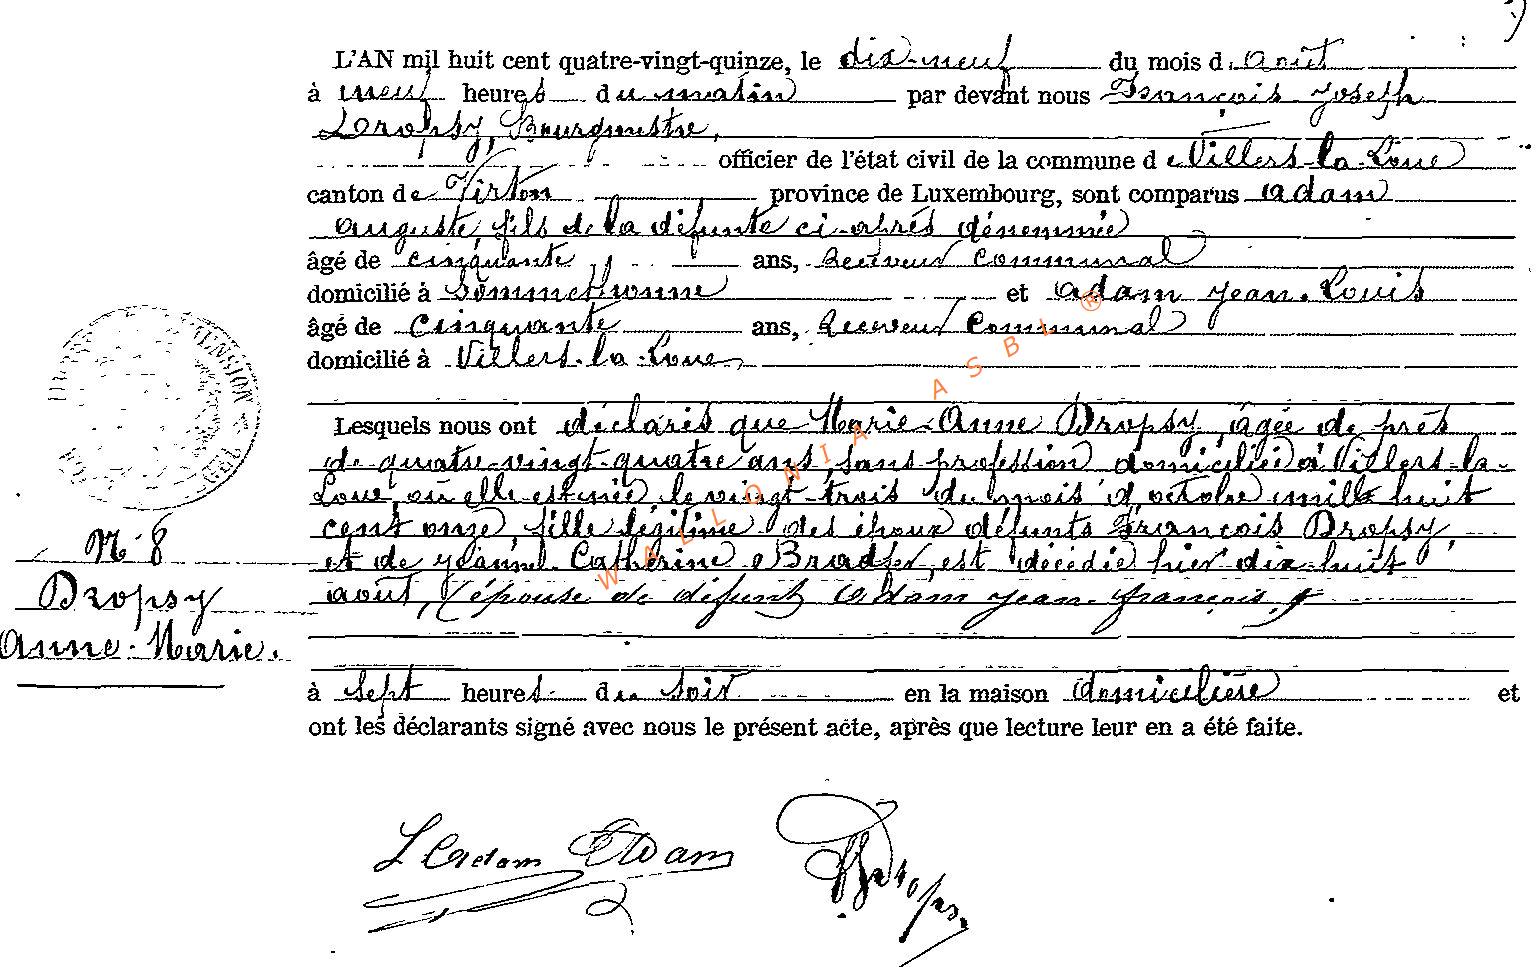 L'AN mil huit cent quatre-vingt-quinze, le dix-neuf du mois d. août
à neuf heures du matin par devant nous François Joseph
Dropsy, Bourgmestre,
officier de l'état civil de la commune de Villers-la-Loue
canton de Virton province de Luxembourg, sont comparus Adam
Auguste, fils de la défunte ci-après dénommée
âgé de cinquante ans, Receveur Communal
domicilié à Sommethonne et Adam Jean-Louis
âgé de cinquante ans, Receveur Communal
domicilié à Villers-la-Loue,
Lesquels nous ont déclarés que Marie-Anne Dropsy, âgée de près
de quatre-vingt-quatre ans, sans profession domiciliée à Villers-la-
Loue, où elle est née le vingt-trois du mois d'octobre mille huit
cent onze, fille légitime des époux défunts François Dropsy,
et de Jeanne Catherine, est décédée hier dix-huit
août, (épouse de défunt Adam Jean-François,
N° 8
Dropsy
Anne-Marie.
à sept heures du soir en la maison domicilière et
ont les déclarants signé avec nous le présent acte, après que lecture leur en a été faite.
L Adam Adam Dropsy
WALLONIA ASBL ®